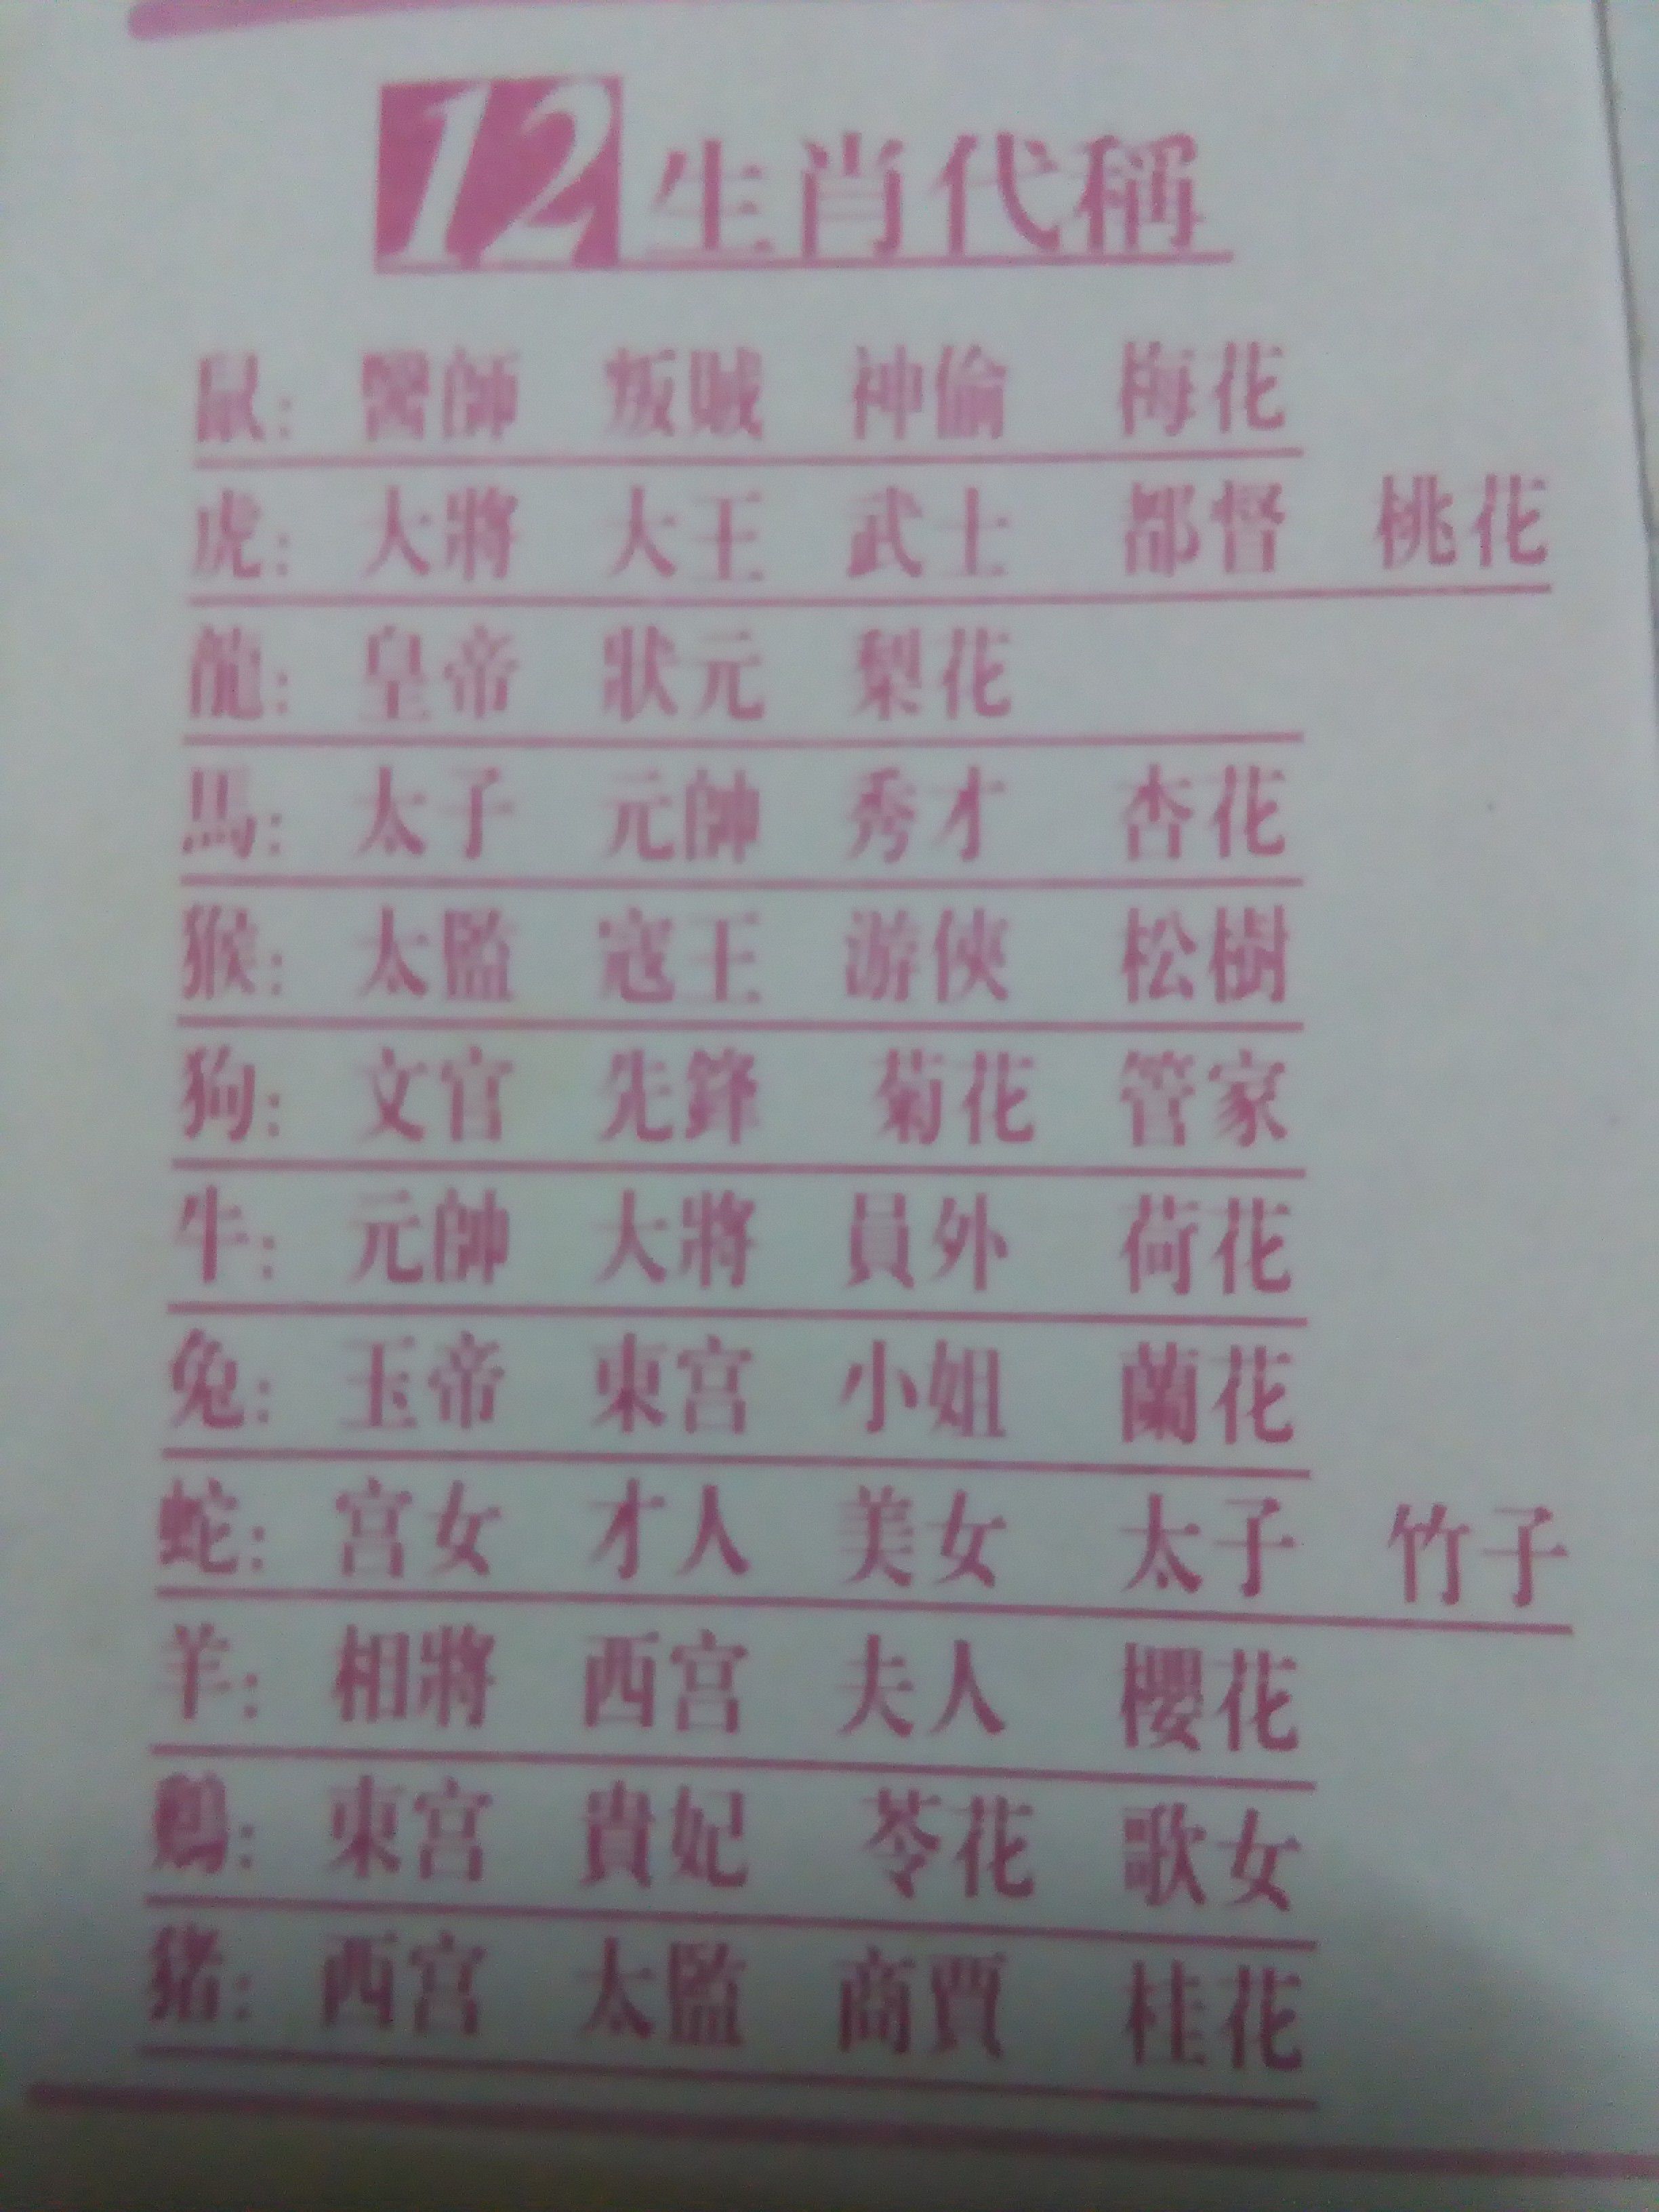 12生肖代稱
鼠：醫師 叛賊 神偷 梅花
虎：大將 大王 武士 都督 桃花
龍：皇帝 狀元 梨花
馬：太子 元帥 秀才 杏花
猴：太監 寇王 游俠 松樹
狗：文官 先鋒 菊花 管家
牛：元帥 大將 員外 荷花
兔：玉帝 東宮 小姐 蘭花
蛇：宮女 才人 美女 太子 竹子
羊：相將 西宮 夫人 櫻花
鷄：東宮 貴妃 苓花 歌女
猪：西宮 太監 商賈 桂花